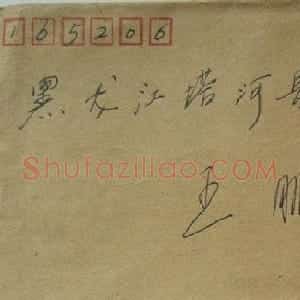 165206
黑龙江塔河县
Shufaziliao.com
王